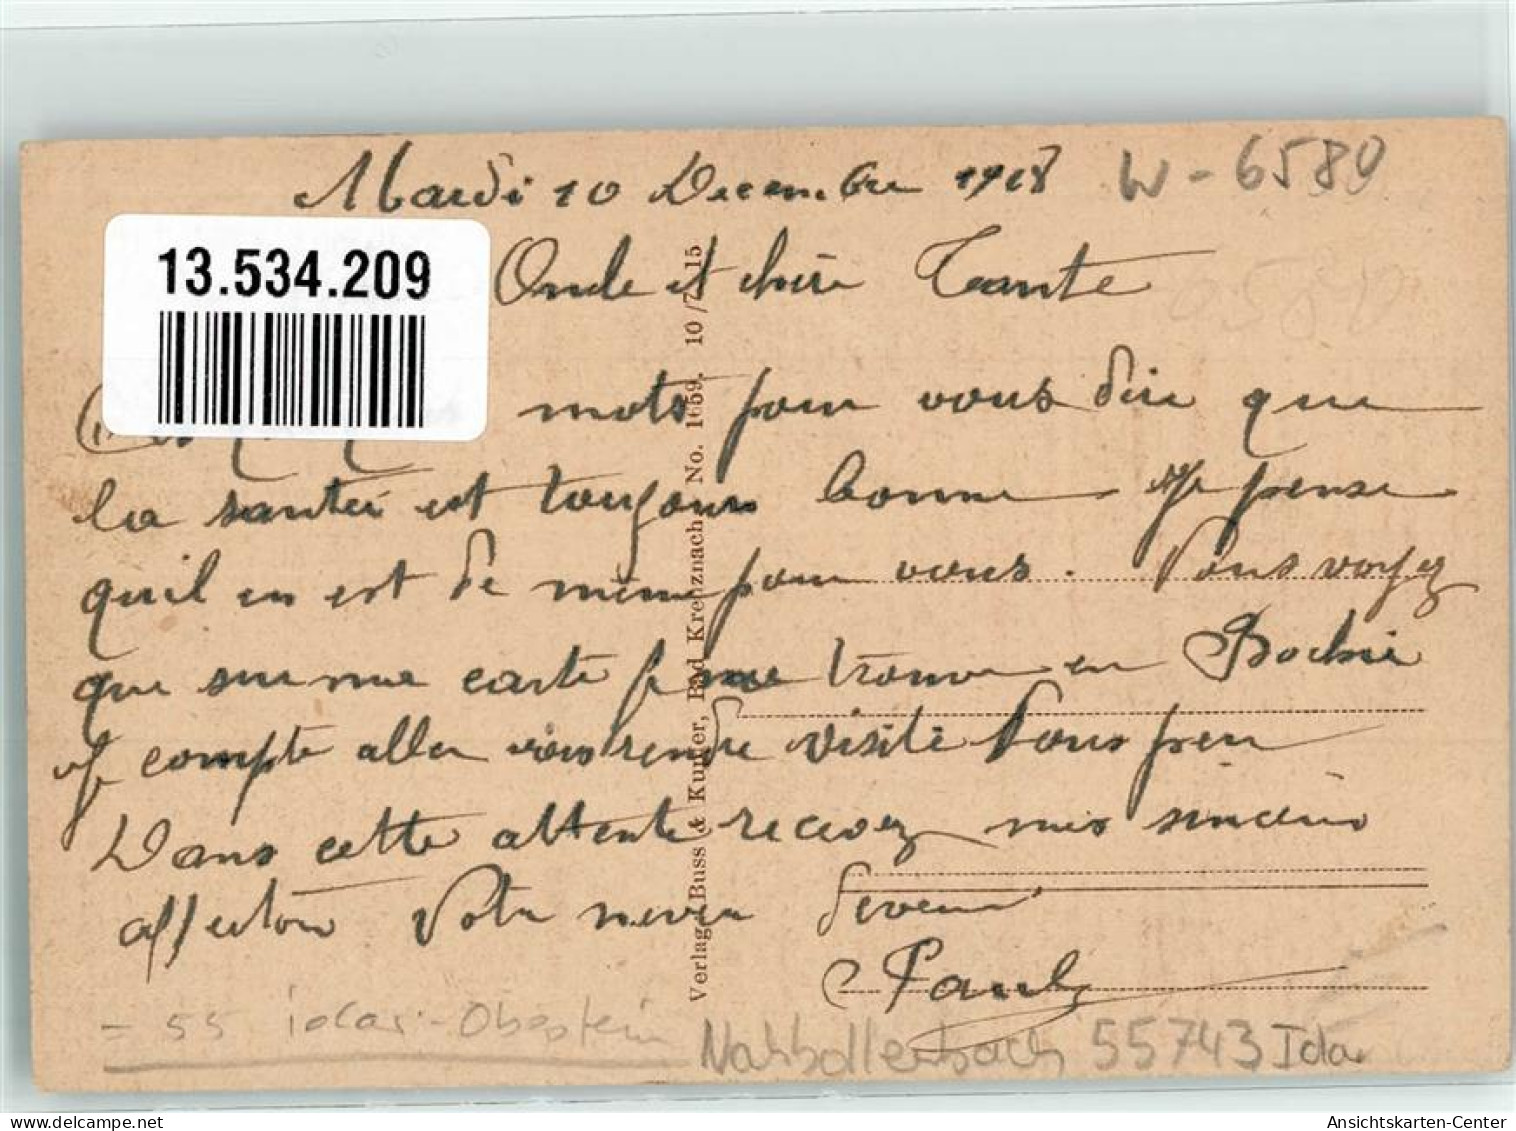 Mardi 10 Decembre 1918
W - 6580
13.534.209
Oncle et chère Tante
mots pour vous dire que
la santée est toujours bonne je pense
qu'il en est de même pour vous. Vous voyez
que sur ma carte je me trouve en Bochie
je compte aller vous rendre visite sous peu
Dans cette attente recevez mes sincères
affection Votre neveu devoué
Paul
= 55 Idar-Oberstein
Nahbollenbach 55743 Idar
Verlag: Buss & Kupfer, Bad Kreuznach No. 1659. 10/7. 15
Ansichtskarten-Center